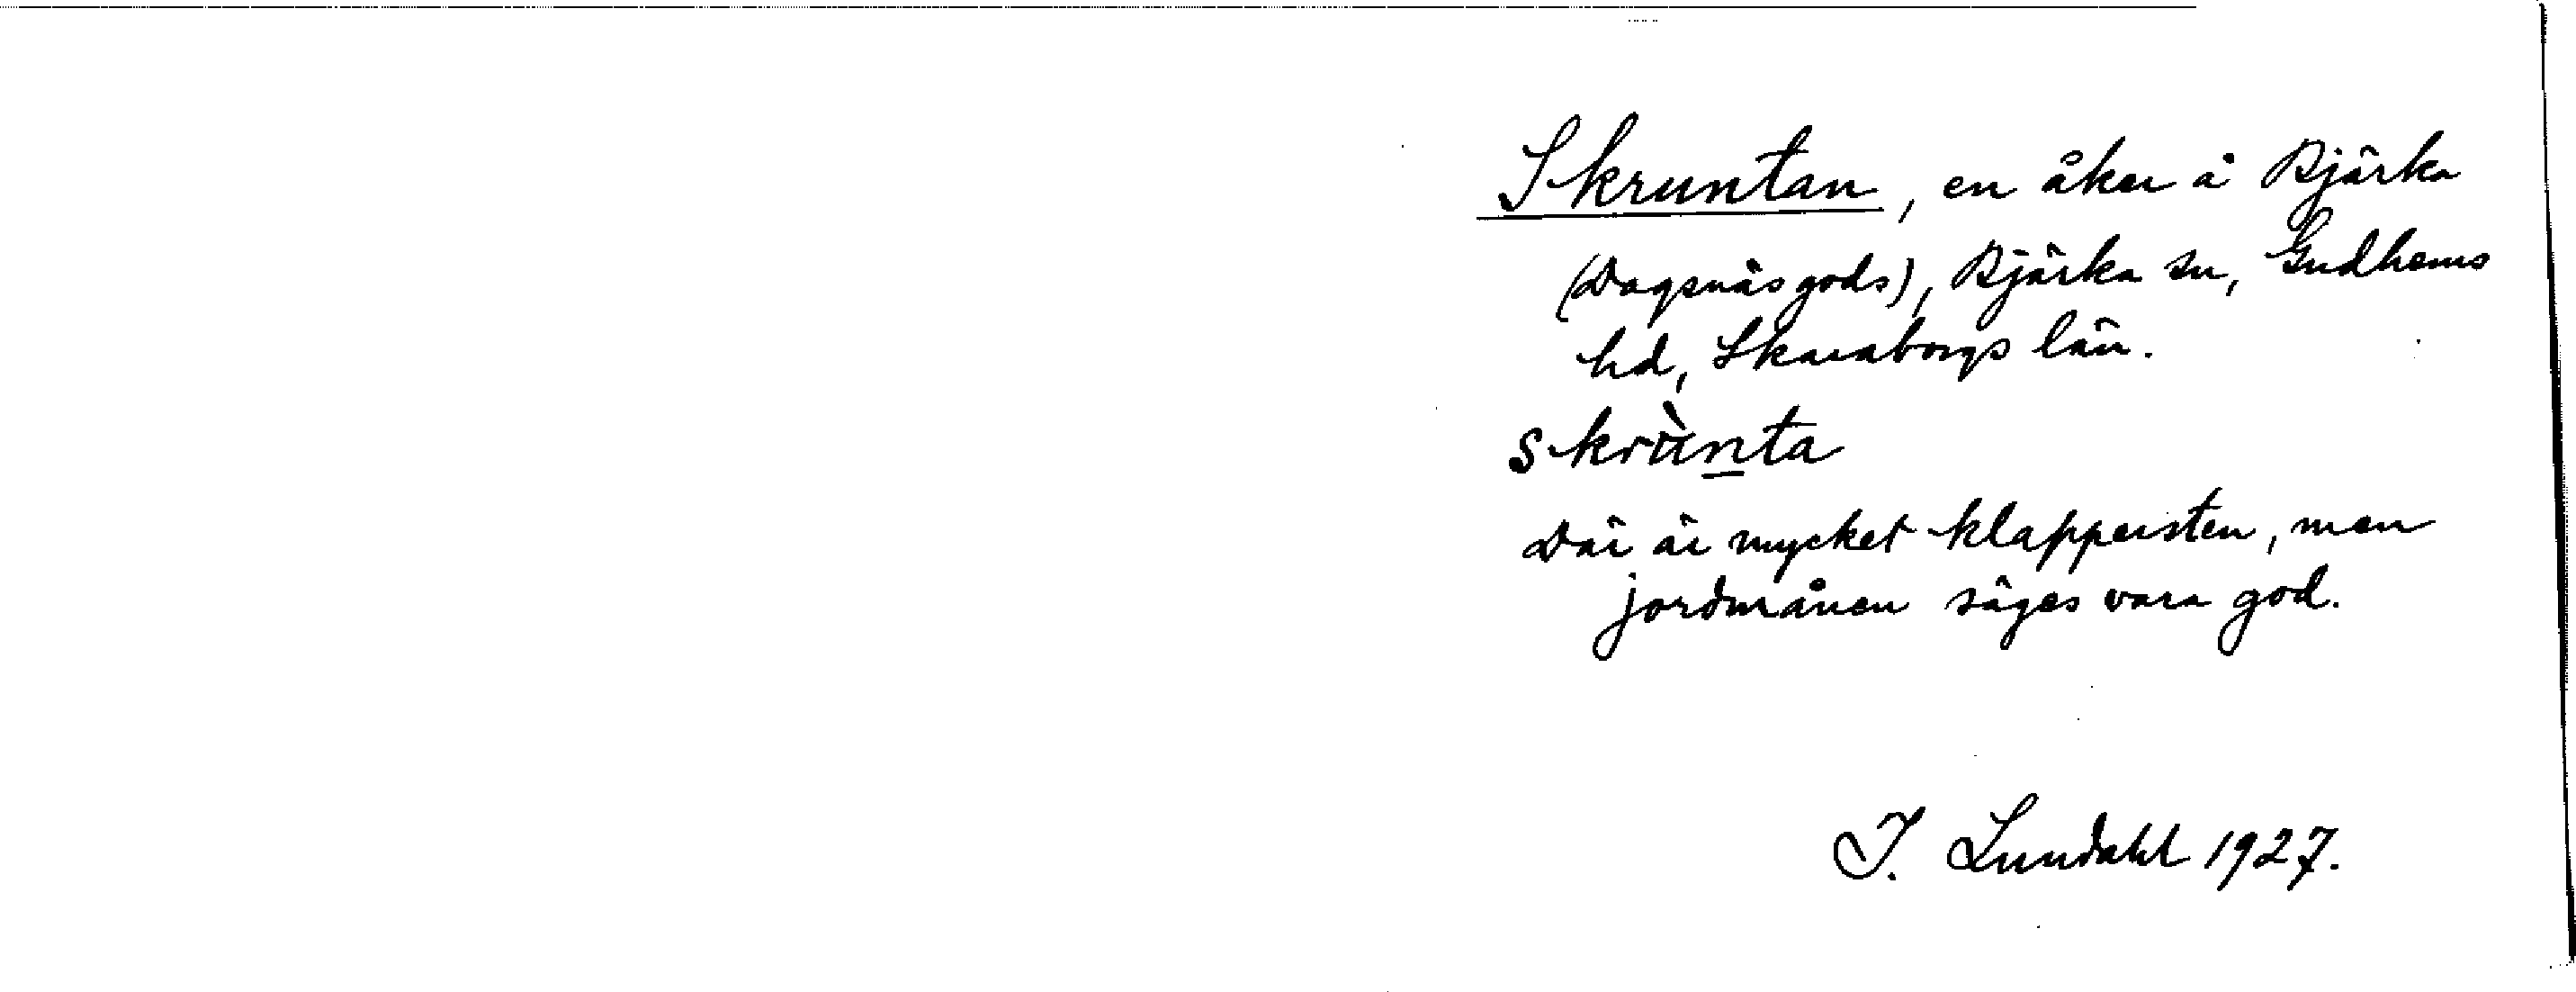 Skruntan, en åker å Bjärka
(Dagsnäs gods), Bjärka sn, Gudhems
hd, Skaraborgs län.
skrùn̲ta
Där är mycket klappersten, men
jordmånen säges vara god.
I. Lundahl 1927.